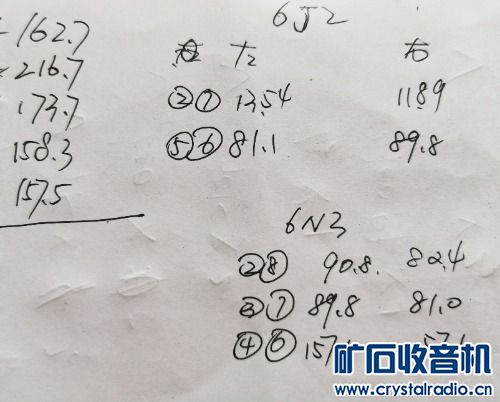 162.7
216.7
173.7
158.3
157.5
6J2
左 右
②⑦ 13.54 118.9
⑤⑥ 81.1 89.8
6N3
②⑧ 90.8 82.4
③⑦ 89.8 81.0
④⑥
矿石收音机
www.crystalradio.cn